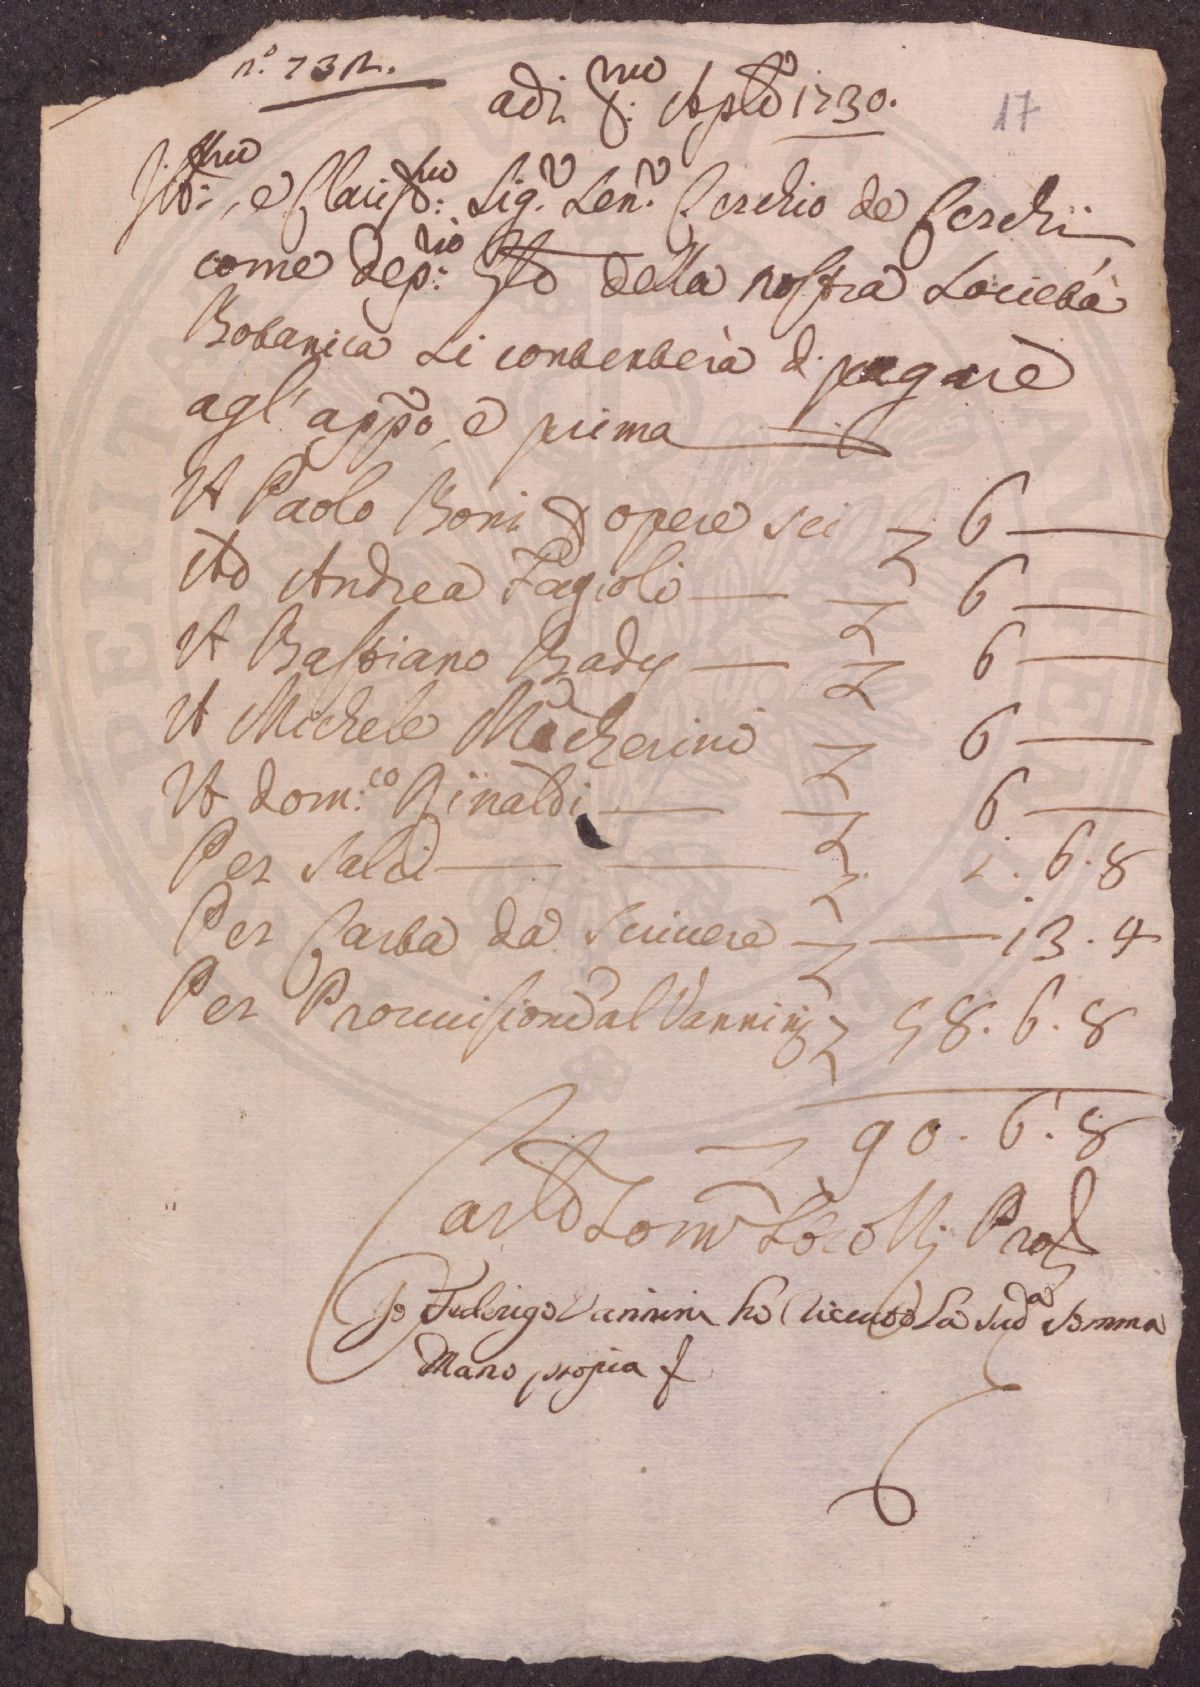 n.° 732.
adi p.mo Aple 1730. 17
Ill.mo, e Clariss.mo Sig.r Sen.r Cerchio de Cerchi
come Dep.rio della nostra Società
Botanica si contenterà di pagare
agl' appo, e prima
A Paolo Boni p opere sei 6
Ad Andrea Fagioli 6
A Bastiano Bady 6
A Michele Macherini 6
A Dom.co Rinaldi 6
Per Salci 1. 6. 8
Per Carta da scrivere 13. 4
Per Prouuisione al Vannini 58. 6. 8
90. 6. 8
Carlo Prov
Io Federigo Vannini ho riceuto la sud.a somma
Mano propia